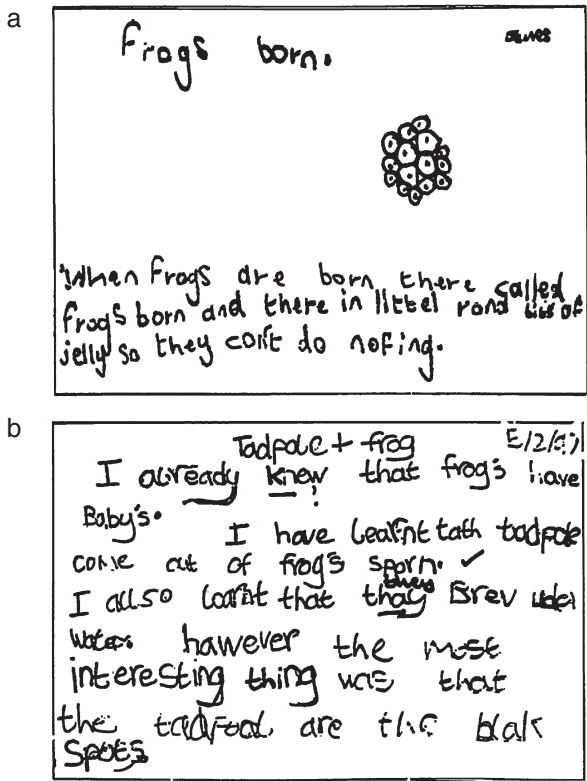 a
Frogs born.
When Frogs are born there called
frogs born and there in littel rond bits of
jelly so they con't do nofing.
b
Tadpole + frog
I already knew that frogs have
Baby's.
I have learnt tath tadpole
come out of frog's sporn. ✓
they
I allso larnt that thay Brev under
water. hawever the most
interesting thing was that
the tadpool are the blak
spots